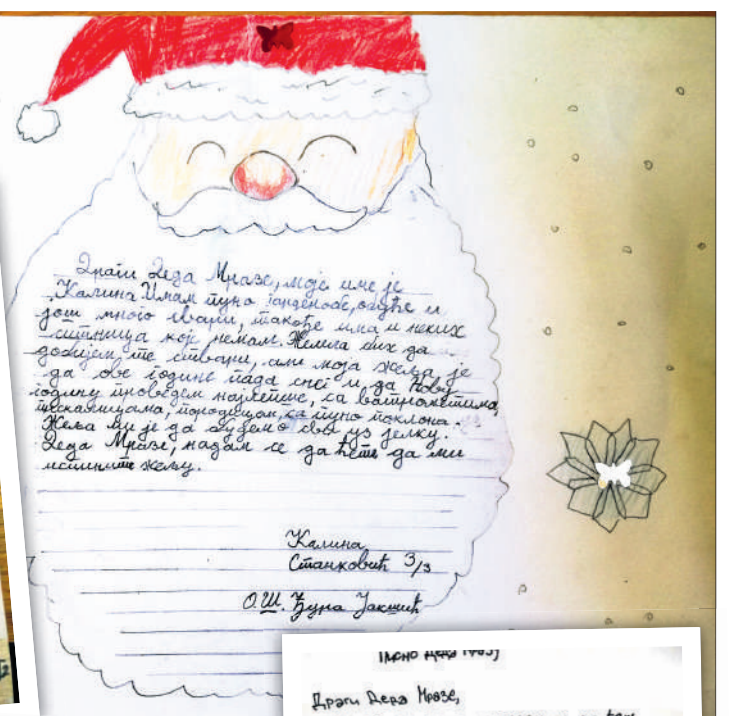 Драги Деда Мразе, моје име је
Калина. Имам пуно гардеробе, обуће и
још много ствари, такође има и неких
ситница које немам. Желела бих да
добијем те ствари, али моја жеља је
да ове године пада снег и да Нову
годину проведем најлепше, са ватрометима,
прскалицама, породицом, са пуно поклона.
Жеља ми је да будемо сви уз јелку.
Деда Мразе, надам се да ћете да ми
испуните жељу.
Калина
Станковић 3/3
О.Ш. Ђура Јакшић
Писмо Деда Мразу
Драги Деда Мразе,